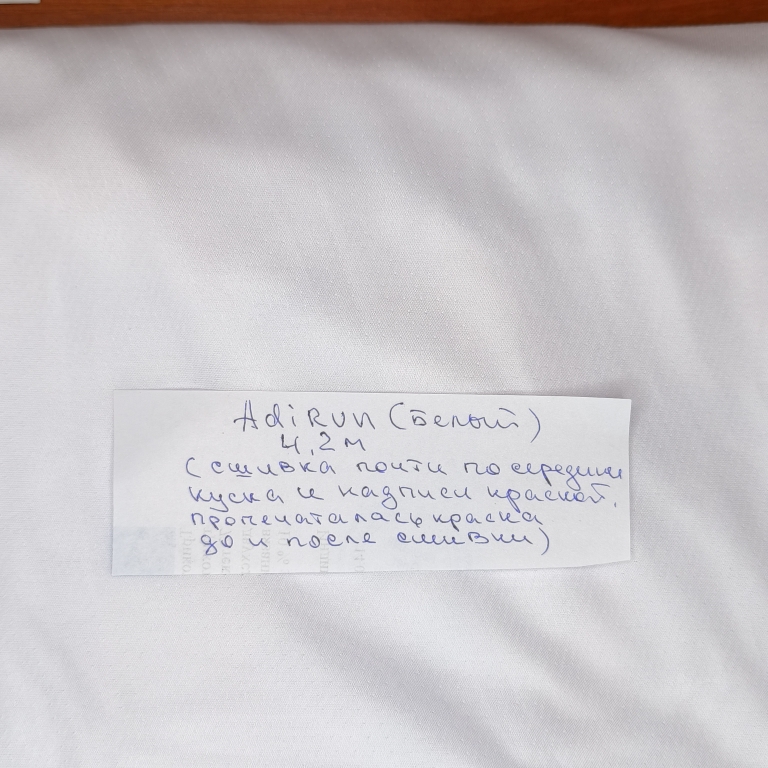 AdiRUN (Белый)
4,2м
(сшивка почти посередине
куска и надписи краской.
пропечаталась краска
до и после сшивки)